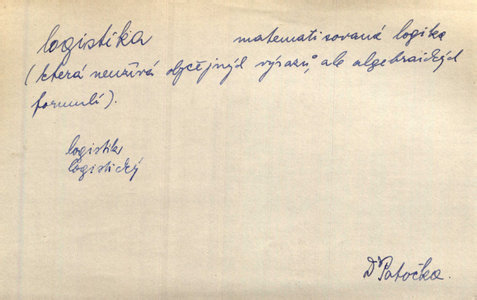 logistika matematisovaná logika
(která neužívá obyčejných výrazů, ale algebraických
formulí).
logistik
logistický
D Patočka.